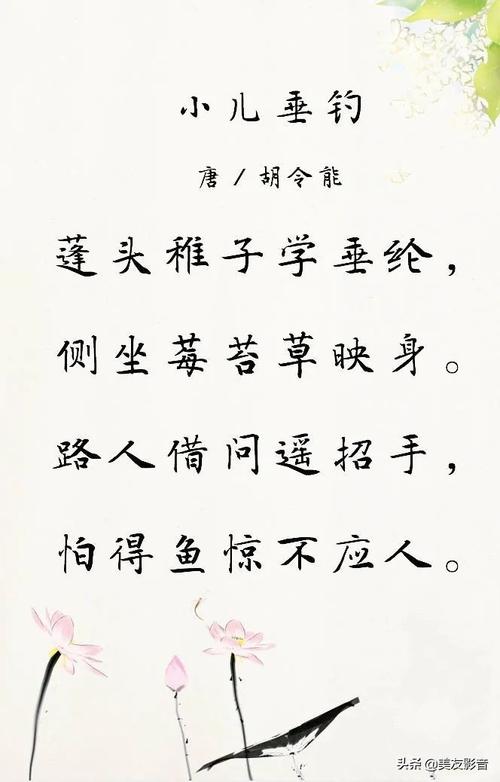 小儿垂钓
唐/胡令能
蓬头稚子学垂纶，
侧坐莓苔草映身。
路人借问遥招手，
怕得鱼惊不应人。
头条@美友影音